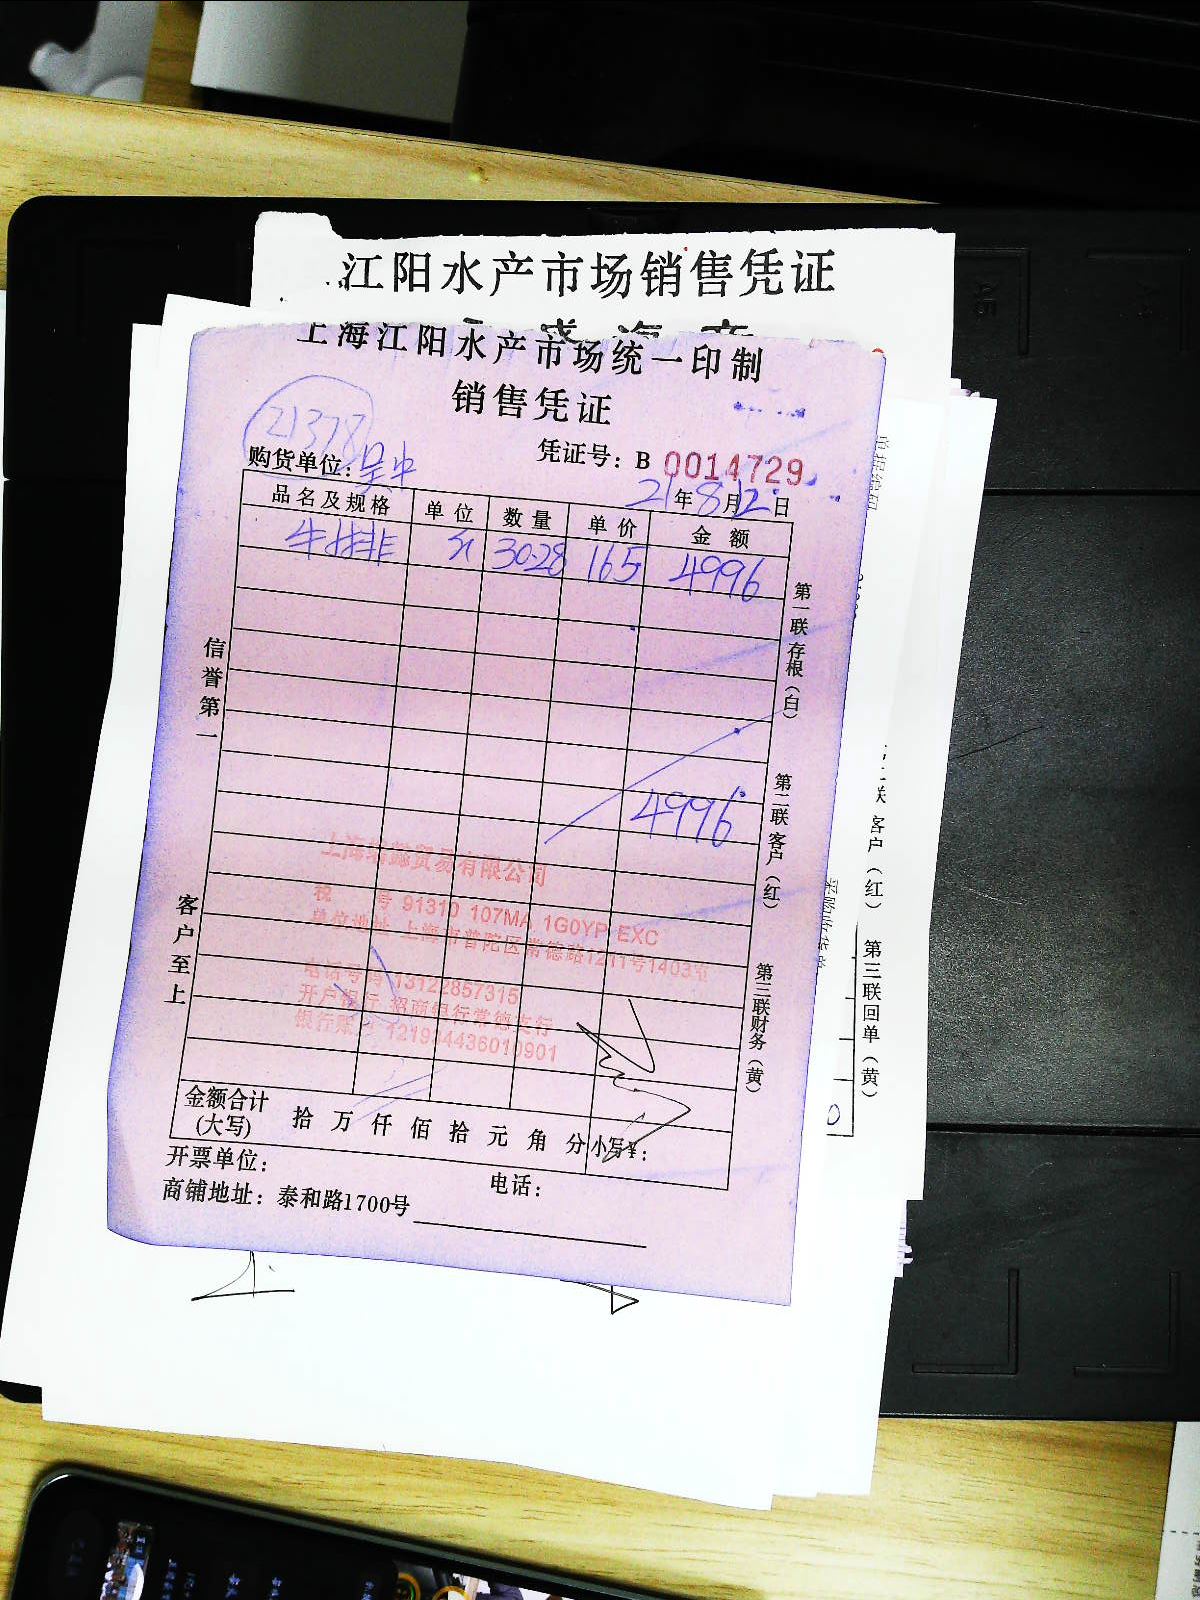 江阳水产市场销售凭证
上海江阳水产市场统一印制
销售凭证
21378
凭证号：B 0014729
购货单位：吴中
21年8月12日
品名及规格 单位 数量 单价 金额
牛排 3028 165 4996
4996
信誉第一
客户至上
第一联存根（白）
第二联客户（红）
第三联财务（黄）
贸易有限公司
税 号 91310 107MA 1G0YP EXC
单位地址 上海市普陀区常德路1211号1403室
电话号码 13122857315
开户银行 招商银行常德支行
银行账 121934436010901
金额合计
(大写) 拾万仟佰拾元角分 小写¥：
开票单位： 电话：
商铺地址：泰和路1700号
联 客户（红） 第三联回单（黄）
A5